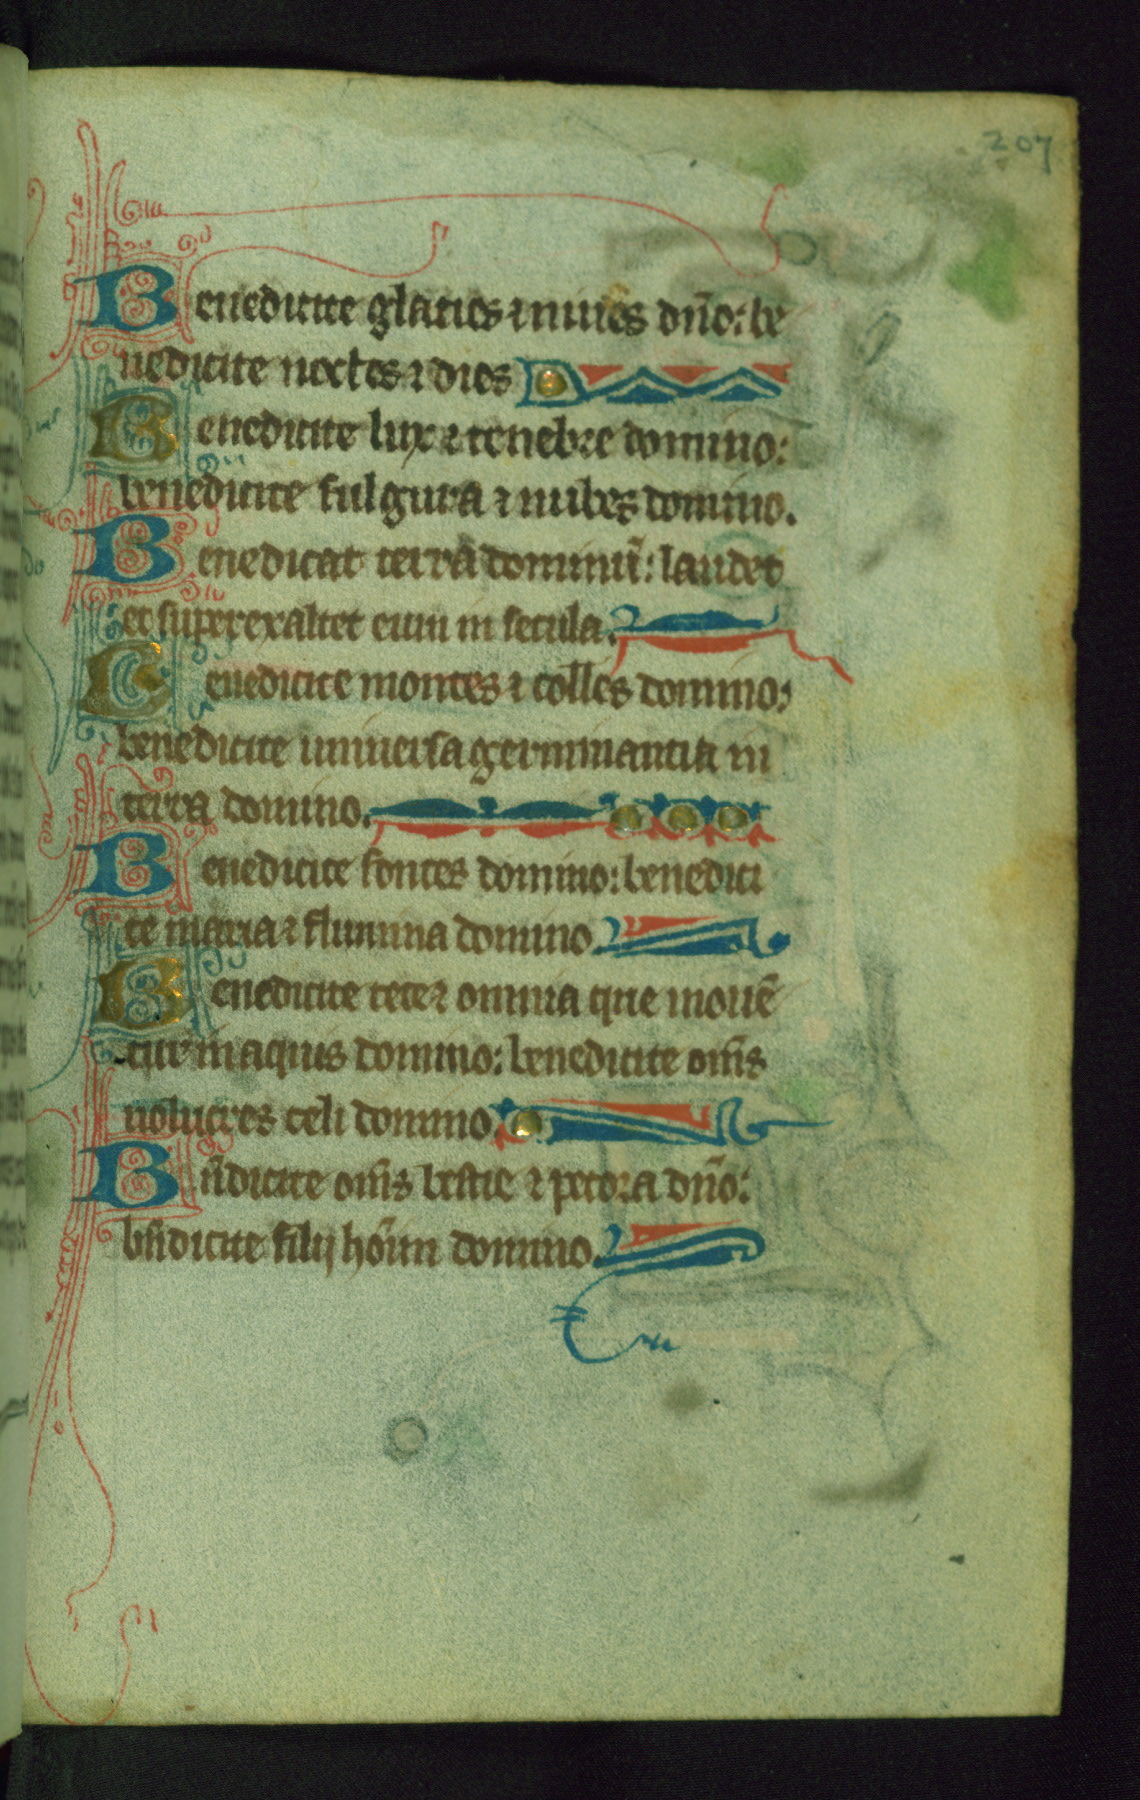 207
Benedicite glacies ⁊ niues dño: be
nedicite noctes ⁊ dies
Benedicite lux ⁊ tenebre domino:
benedicite fulgura ⁊ nubes domino.
Benedicat terra dominũ: laudet
et superexaltet eum in secula.
Benedicite montes ⁊ colles domino:
benedicite uniuersa germinantia in
terra domino.
Benedicite fontes domino: benedici
te maria ⁊ flumina domino
Benedicite cete ⁊ omnia que mouẽ
tur in aquis domino: benedicite om̃s
uolucres celi domino
Bñdicite om̃s bestie ⁊ pecora dño:
bñdicite filij hoĩm domino.